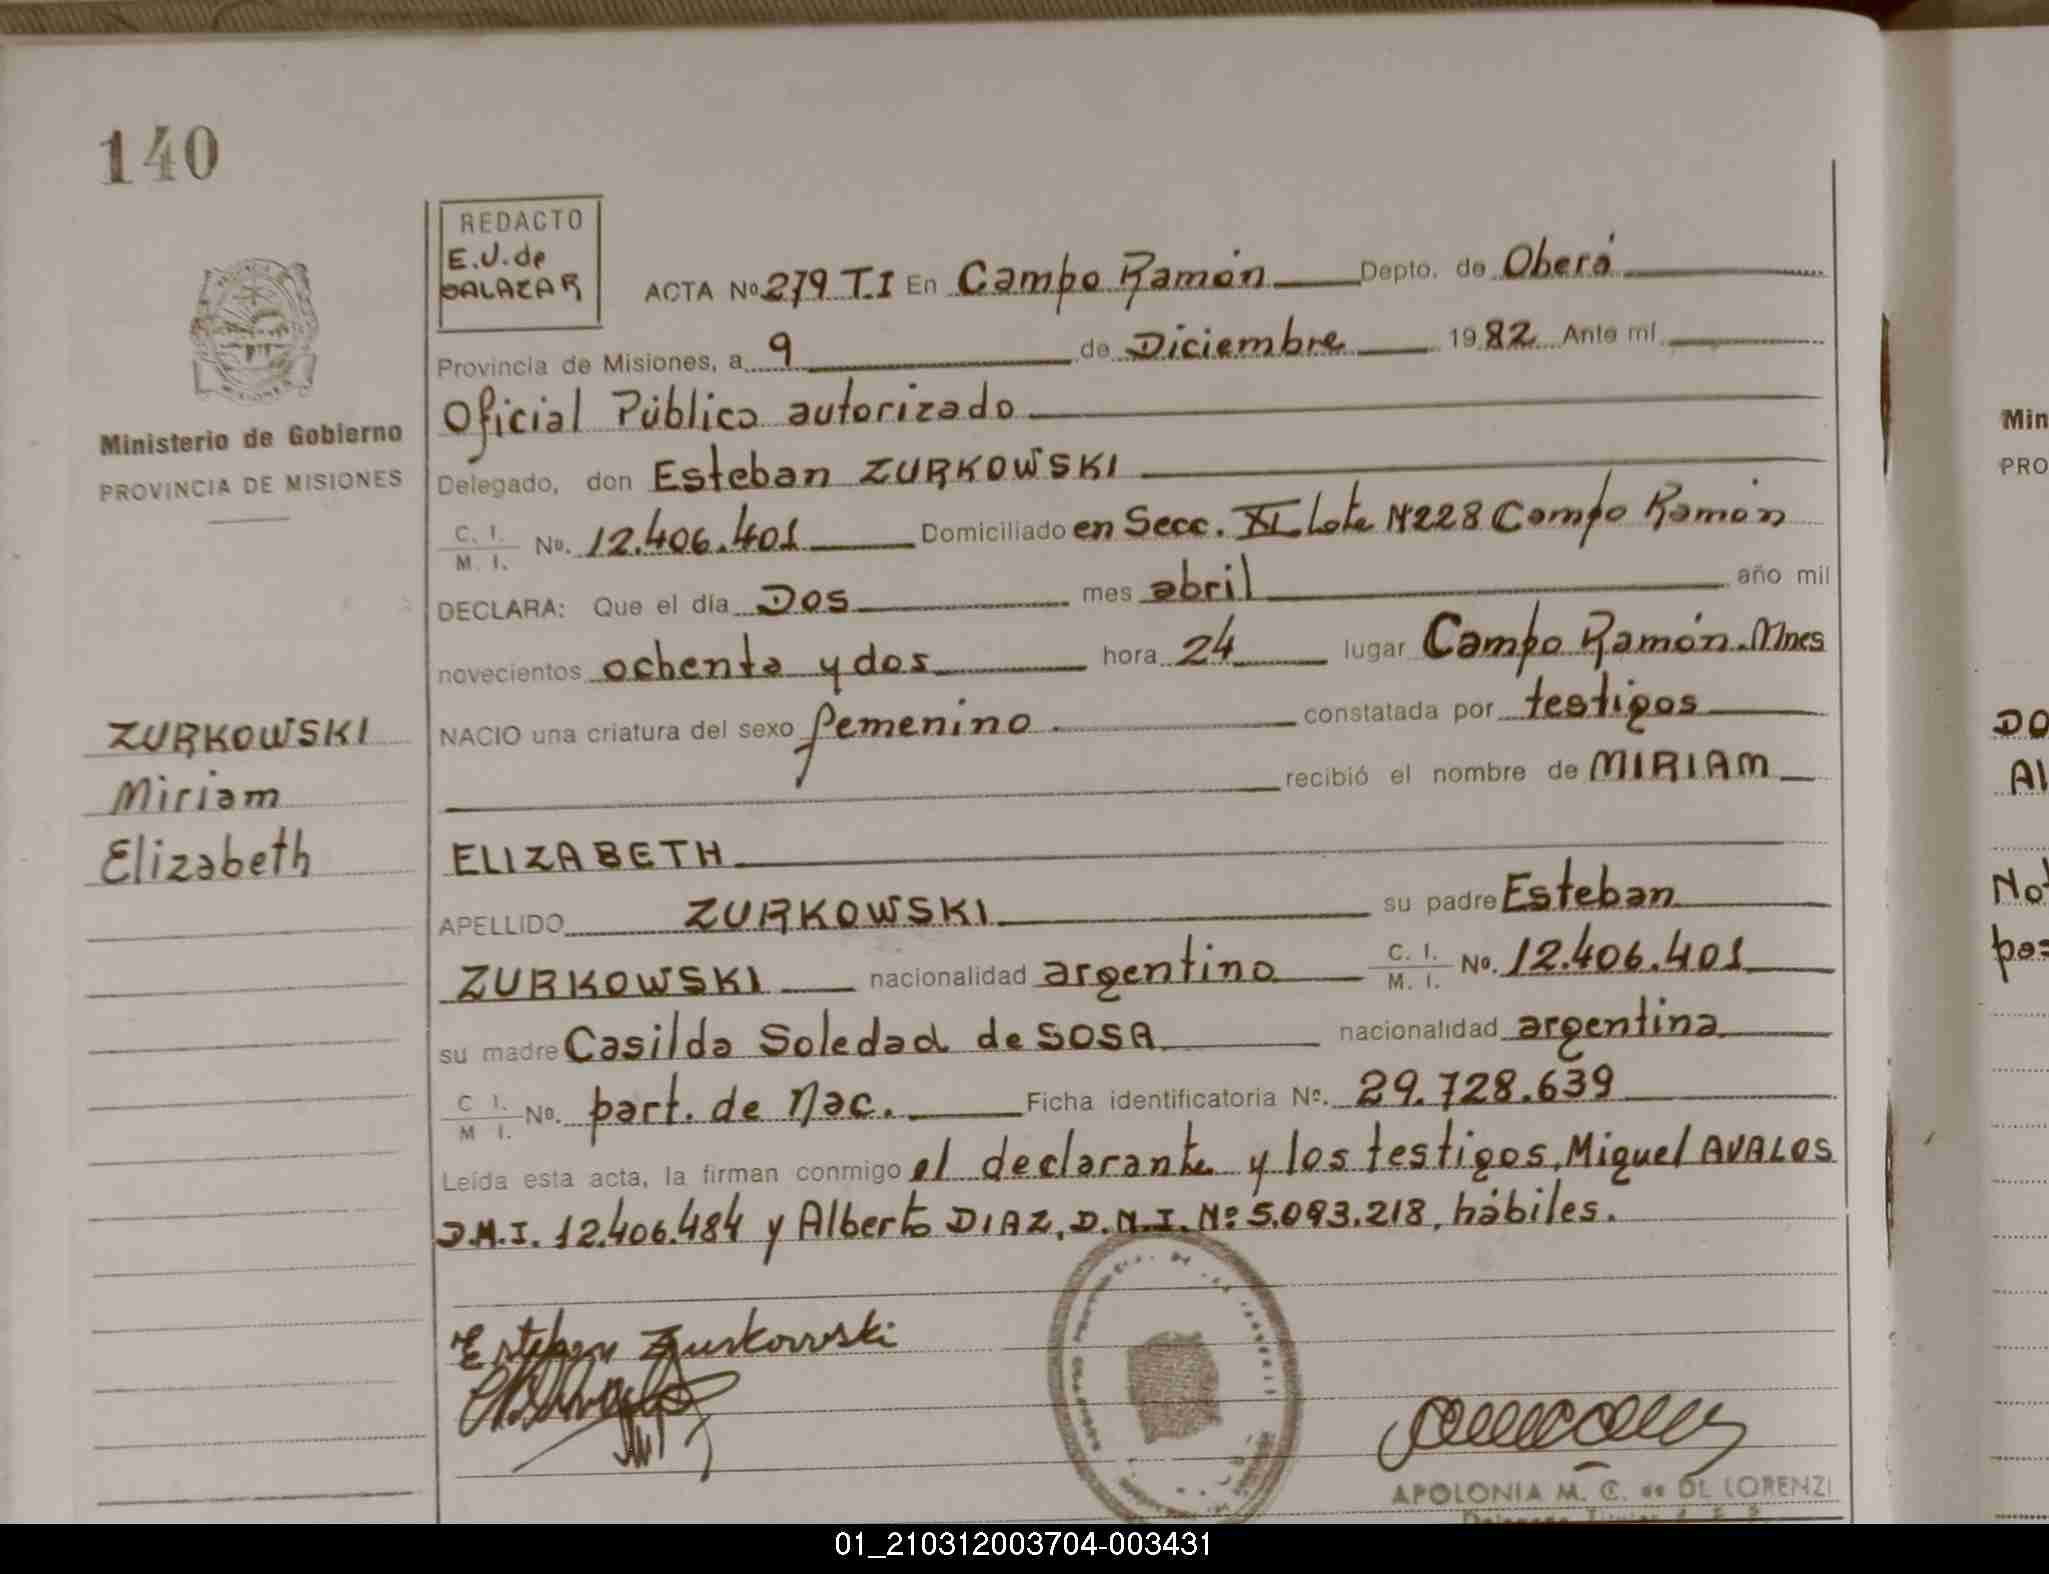 140
REDACTO
E.U. de
SALAZAR
ACTA Nº 279 T.I En Campo Ramón Depto. de Oberá
Provincia de Misiones, a 9 de Diciembre 1982 Ante mí
Oficial Público autorizado
Ministerio de Gobierno
PROVINCIA DE MISIONES
Delegado, don Esteban ZURKOWSKI
C. I.
M. I. Nº. 12.406.401 Domiciliado en Secc. XI Lote Nº228 Campo Ramón
DECLARA: Que el día Dos mes abril año mil
novecientos ochenta y dos hora 24 lugar Campo Ramón. Mnes
NACIO una criatura del sexo femenino constatada por testigos
recibió el nombre de MIRIAM
ELIZABETH
ZURKOWSKI
Miriam
Elizabeth
APELLIDO ZURKOWSKI su padre Esteban
ZURKOWSKI nacionalidad argentino C. I. M. I. Nº. 12.406.401
su madre Casilda Soledad de SOSA nacionalidad argentina
C I. M I. Nº. part. de Nac. Ficha identificatoria Nº. 29.728.639
Leída esta acta, la firman conmigo el declarante y los testigos, Miguel AVALOS
D.N.I. 12.406.484 y Alberto DIAZ, D.N.I. Nº 5.093.218, hábiles.
Esteban Zurkowski
APOLONIA M. C. de DE LORENZI
Min
PRO
DO
Al
No
pas
01_210312003704-003431